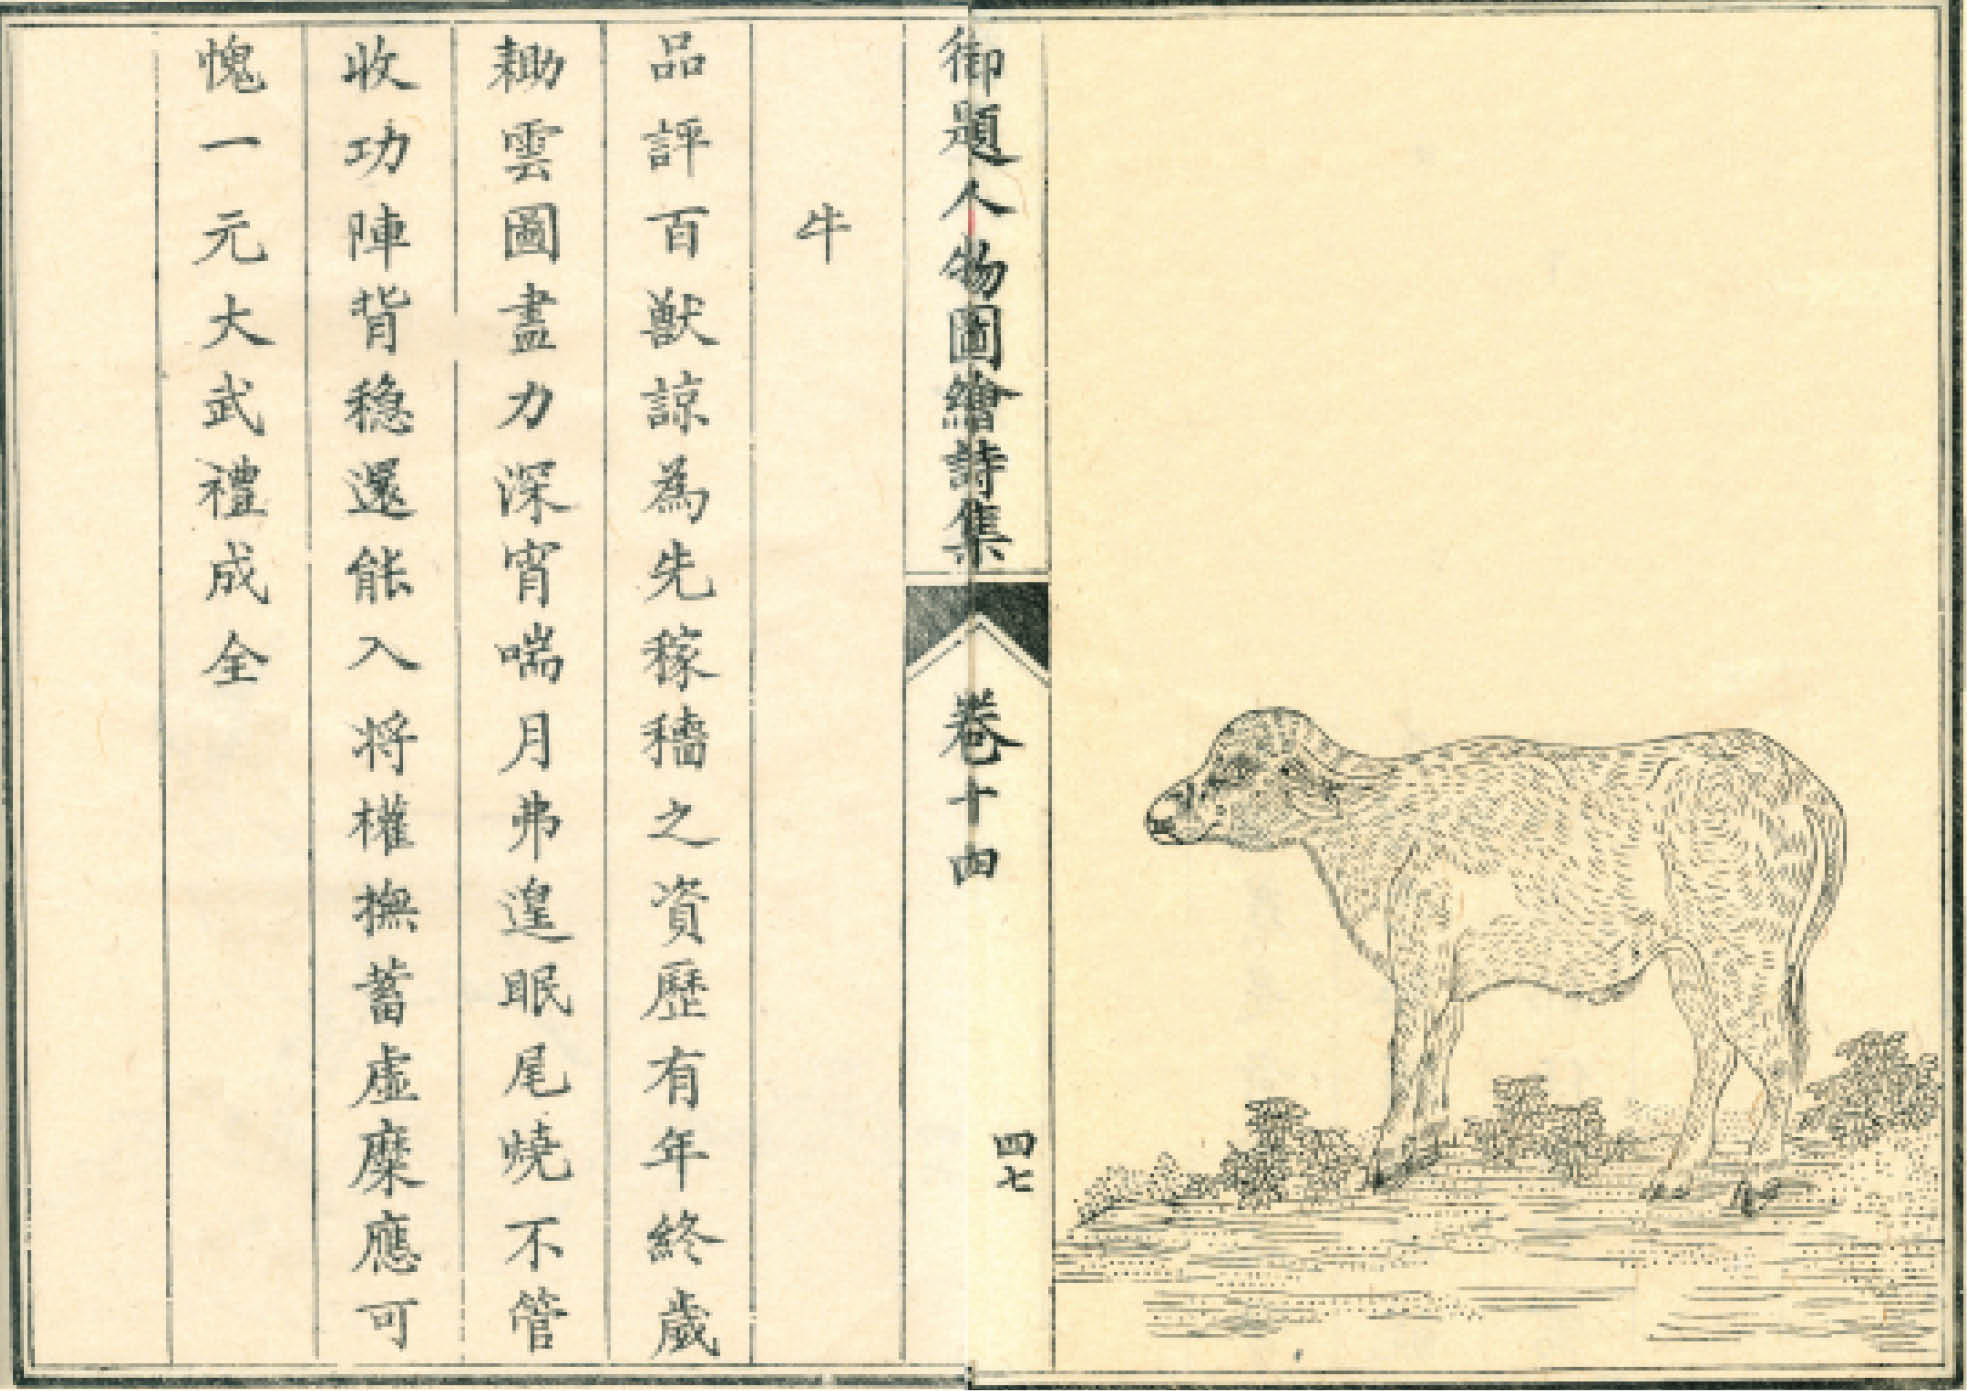 御題人物圖繪詩集
卷十四
四七
牛
品評百獸諒為先稼穡之資歷有年終歲
耡雲圖盡力深宵喘月弗遑眠尾燒不管
收功陣背穏還能入将權撫蓄虛糜應可
愧一元大武禮成全